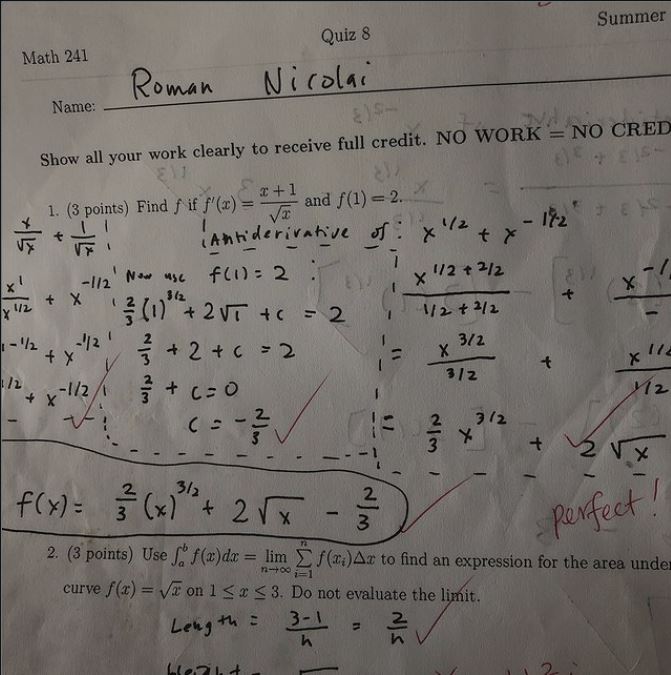 Summer
Quiz 8
Math 241
Name: Roman Nicolai
Show all your work clearly to receive full credit. NO WORK = NO CRED
1. (3 points) Find f if f′(x) = (x+1)/√x and f(1) = 2.
x/√x + 1/√x
Antiderivative of: x^1/2 + x^-1/2
x^1/x^1/2 + x^-1/2
Now use f(1) = 2 :
x^(1/2+2/2)/(1/2+2/2) + x^-1/
2/3 (1)^3/2 + 2√1 + c = 2
1-1/2 + x^-1/2
2/3 + 2 + c = 2
= x^3/2/(3/2) + x^1/2/(1/2)
1/2 + x^-1/2
2/3 + c = 0
c = -2/3
= 2/3 x^3/2 + 2√x
f(x) = 2/3 (x)^3/2 + 2√x - 2/3
perfect!
2. (3 points) Use ∫_a^b f(x)dx = lim_{n→∞} Σ_{i=1}^n f(x_i)Δx to find an expression for the area under
curve f(x) = √x on 1 ≤ x ≤ 3. Do not evaluate the limit.
Length = (3-1)/n = 2/n